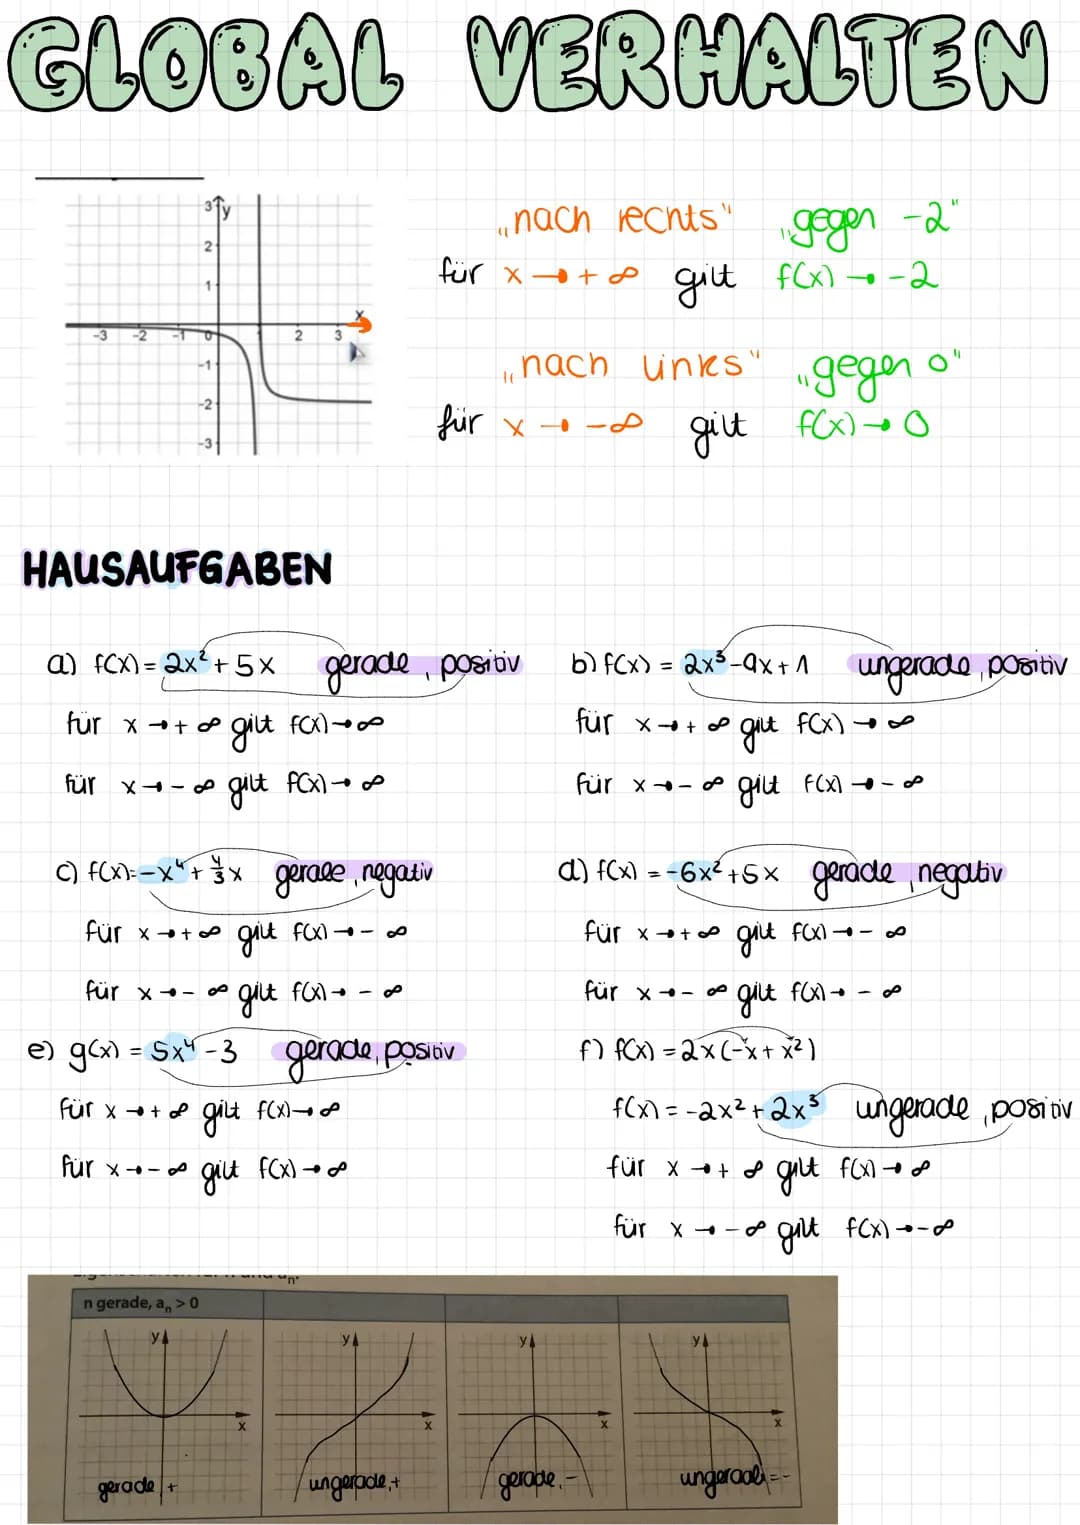 GLOBAL VERHALTEN
"nach rechts" "gegen -2"
für x → + ∞ gilt f(x) → -2
"nach links" "gegen 0"
für x → -∞ gilt f(x) → 0
3 y
2
1
x
-3 -2 -1 0 2 3
-1
-2
-3
HAUSAUFGABEN
a) f(x) = 2x² + 5x gerade, positiv
für x → + ∞ gilt f(x) → ∞
für x → - ∞ gilt f(x) → ∞
b) f(x) = 2x³ - 9x + 1 ungerade, positiv
für x → + ∞ gilt f(x) → ∞
für x → - ∞ gilt f(x) → - ∞
c) f(x) = -x⁴ + 4/3 x gerade, negativ
für x → + ∞ gilt f(x) → - ∞
für x → - ∞ gilt f(x) → - ∞
d) f(x) = -6x² + 5x gerade, negativ
für x → + ∞ gilt f(x) → - ∞
für x → - ∞ gilt f(x) → - ∞
e) g(x) = 5x⁴ - 3 gerade, positiv
für x → + ∞ gilt f(x) → ∞
für x → - ∞ gilt f(x) → ∞
f) f(x) = 2x (-x + x²)
f(x) = -2x² + 2x³ ungerade, positiv
für x → + ∞ gilt f(x) → ∞
für x → - ∞ gilt f(x) → -∞
n gerade, aₙ > 0
y y y y
x x x x
gerade, + ungerade, + gerade, - ungerade, -